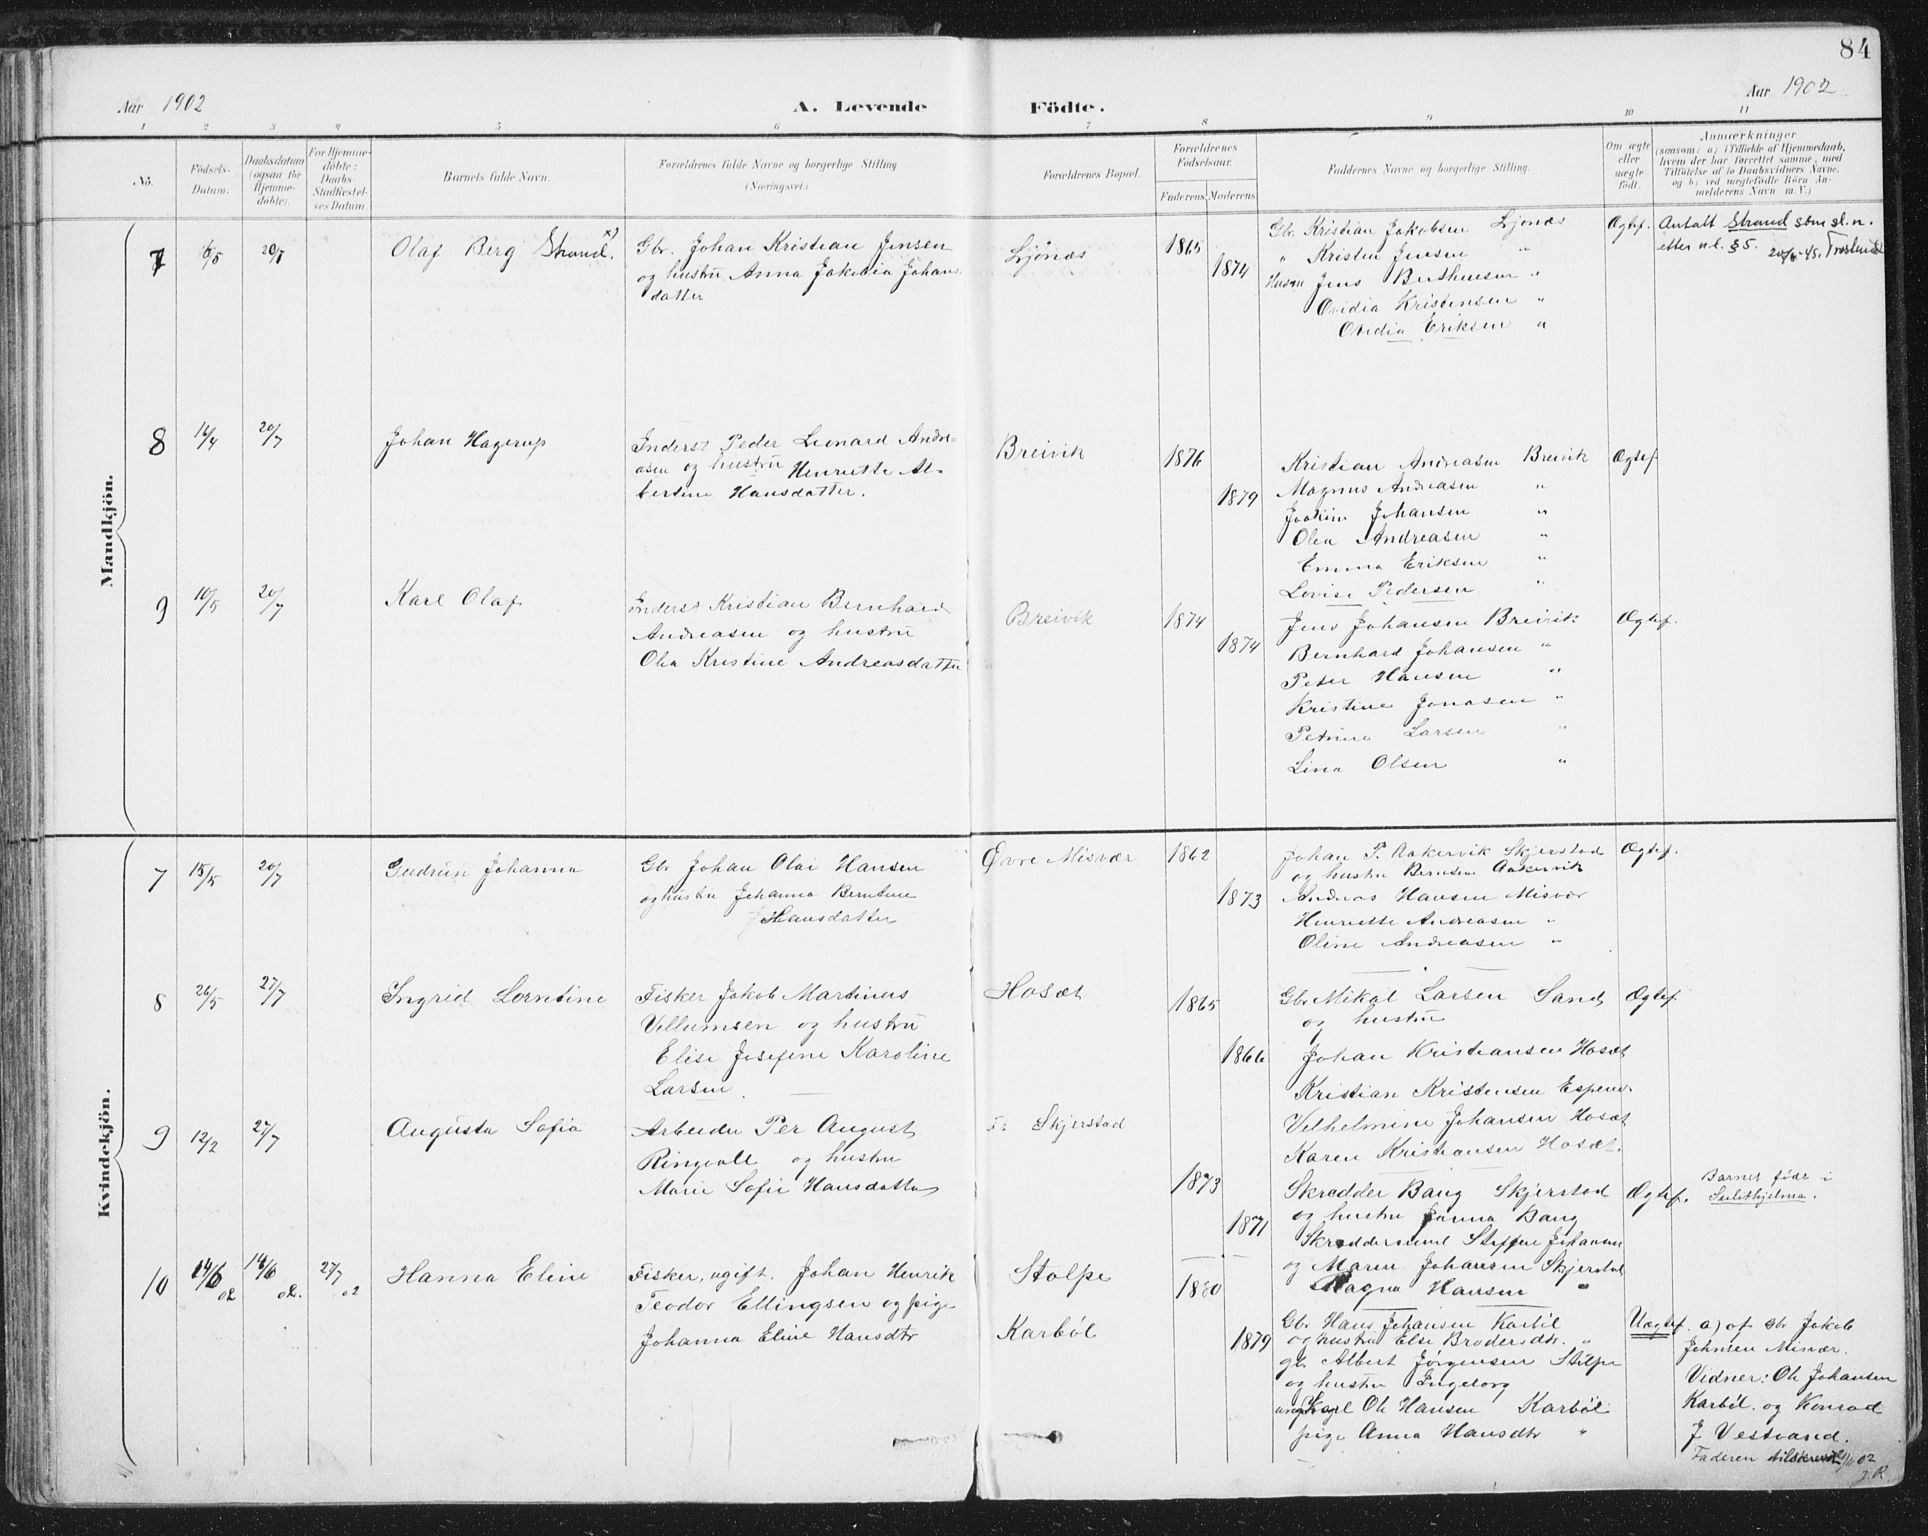 84
Aar 1902
A. Levende Födte.
Aar 1902
1 2 3 4 5 6 7 8 9 10 11
No.
Födsels-Datum.
Daabsdatum (ogsaa for Hjemme-döbte).
For Hjemme-döbte: Daabs-Stadfæstel-ses Datum.
Barnets fulde Navn.
Forældrenes fulde Navne og borgerlige Stilling.
(Næringsvei.)
Forældrenes Bopæl.
Forældrenes Födselsaar.
Faderens. Moderens.
Faddernes Navne og borgerlige Stilling.
Om ægte eller uægte födt.
Anmærkninger
(saasom: a) i Tilfælde af Hjemmedaab,
hvem der har forrettet samme, med
Tilföielse af to Daabsvidners Navne.
og b) ved uægtefödte Börn An-
melderens Navn m. V.)
Mandkjön.
7 6/5 20/7 Olaf Berg Strand. x)
Gbr. Johan Kristian Jensen
og hustru Anna Jakobia Johans
datter
Ljönæs 1865 1874
Gbr. Kristian Jakobsen Ljonæs
" Kristen Jensen "
Husm Jens Berthusen "
Ovidia Kristensen "
Ovidia Eriksen "
Ægtef.
Antatt Strand som sl.n.
etter n.l. § 5. 20/6-45.
8 16/4 20/7 Johan Hagerup
Inderst Peder Leonard Andre-
asen og hustru Henriette Al-
bertine Hansdatter.
Breivik 1876 1879
Kristian Andreasen Breivik
Magnus Andreasen "
Joakim Johansen "
Olea Andreasen "
Emma Eriksen "
Lovise Pedersen "
Ægtef
9 10/5 20/7 Karl Olaf
Inderst Kristian Bernhard
Andreasen og hustru
Olea Kristine Andreasdatter
Breivik 1874 1874
Jens Johansen Breivik
Bernhard Johansen "
Peter Hansen "
Kristine Jonasen "
Petrine Larsen "
Lina Olsen "
Ægtef.
Kvindekjön.
7 15/5 20/7 Gudrun Johanna
Gbr Johan Olai Hansen
og hustru Johanna Berntine
Hansdatter
Øvre Misvær 1862 1873
Johan P. Aakervik Skjerstad
og hustru Bernsen Aakervik
Andreas Hansen Misvær
Henriette Andreasen "
Oline Andreasen "
Ægtef.
8 26/5 27/7 Ingrid Lorntine
Fisker Jakob Martinus
Villumsen og hustru
Elise Josefine Karoline
Larsen.
Hosæt 1865 1866
Gbr Mikal Larsen Sand
og hustru
Johan Kristiansen Hosæt
Kristian Kristensen Espenes
Vilhelmine Johansen Hosæt
Karen Kristiansen Hosæt.
Ægtef.
9 12/2 27/7 Augusta Sofia
Arbeider Per August
Ringvall og hustru
Marie Sofie Hansdatter
Skjerstad 1873 1871
Skredder Bang Skjerstad
og hustru Janna Bang
Skreddersvend Steffen Johansen
og Maren Johansen Skjerstad
Magna Hansen "
Ægtef.
Barnet født i
Sulithjelma.
10 14/6 02 14/6 02. 27/7 02 Hanna Eline
Fisker, ugift, Johan Henrik
Teodor Ellingsen og pige
Johanna Eline Hansdtr
Stolpe
Karbøl
1880 1879
Gbr Hans Johansen Karbøl
og hustru Else Brodersdtr. "
gbr. Albert Jørgensen Stolpe
og hustru Ingeborg
ungkarl Ole Hansen Karbøl
pige Anna Hansdtr "
Uægtef.
a) af Gbr Jakob
Johnsen Misvær.
Vidner: Ole Johansen
Karbøl. og Konrad
J Vestvand.
Faderen tilskrevet /11 02
J.R.